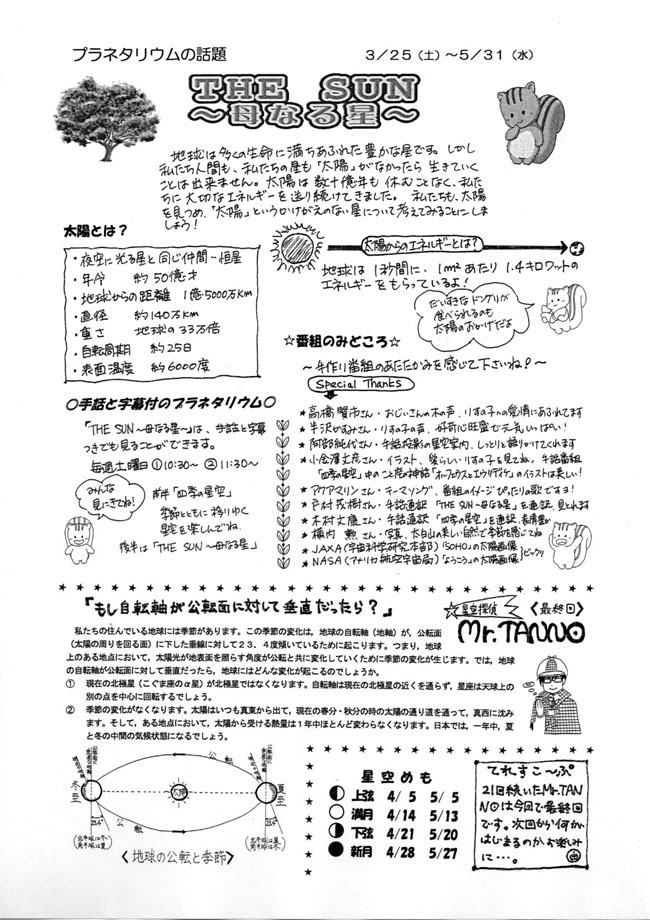 プラネタリウムの話題
3/25（土）～5/31（水）
THE SUN
～母なる星～
地球は多くの生命に満ちあふれた豊かな星です。しかし
私たち人間も、私たちの星も「太陽」がなかったら生きていく
ことは出来ません。太陽は数十億年も休むことなく、私た
ちに大切なエネルギーを送り続けてきました。私たちも、太陽
を見つめ、「太陽」というかけがえのない星について考えてみることにしま
しょう！
太陽とは？
・夜空に光る星と同じ仲間－恒星
・年令 約50億才
・地球からの距離 1億5000万Km
・直径 約140万Km
・重さ 地球の33万倍
・自転周期 約25日
・表面温度 約6000度
太陽からのエネルギーとは？
地球は1秒間に、1m²あたり1.4キロワットの
エネルギーをもらっているよ！
だいすきなドングリが
食べられるのも
太陽のおかげだよ
☆番組のみどころ☆
～手作り番組のあたたかみを感じて下さいね！～
Special Thanks
★高橋賢市さん・おじいさんの木の声、りすの子への愛情にあふれてます
★半沢かずみさん・りすの子の声、好奇心旺盛で元気いっぱい！
★阿部純代さん・手話投影の星空案内、しっとりと語りかけてくれます
★小金澤丈彦さん・イラスト、愛らしいりすの子を見てね。手話番組
「四季の星空」中のこと座の神話「オルフェウスとエウリディケ」のイラストは美しい！
★アクアマリンさん・テーマソング、番組のイメージぴったりの歌ですヨ！
★戸村茂樹さん・手話通訳「THE SUN～母なる星」を通訳、見とれます
★木村文庸さん・手話通訳「四季の星空」を通訳、表情豊か
★横内勲さん・写真、太白山の美しい自然で季節を感じてね
★JAXA（宇宙科学研究本部）「SOHO」の太陽画像
★NASA（アメリカ航空宇宙局）「ようこう」の太陽画像
ビックリ
○手話と字幕付のプラネタリウム○
「THE SUN～母なる星～」は、手話と字幕
つきでも見ることができます。
毎週土曜日①10:30～ ②11:30～
みんな
見にきてね！
前半「四季の星空」
季節とともに移りゆく
星空を楽しんでね
後半は「THE SUN～母なる星」
「もし自転軸が公転面に対して垂直だったら？」
星空探偵
〈最終回〉
Mr.TANNO
私たちの住んでいる地球には季節があります。この季節の変化は、地球の自転軸（地軸）が、公転面
（太陽の周りを回る面）に下した垂線に対して２３．４度傾いているために起こります。つまり、地球
上のある地点において，太陽光が地表面を照らす角度が公転と共に変化していくために季節の変化が生じます。では，地球
の自転軸が公転面に対して垂直だったら，地球にはどんな変化が起こるのでしょうか。
① 現在の北極星（こぐま座のα星）が北極星ではなくなります。自転軸は現在の北極星の近くを通らず，星座は天球上の
別の点を中心に回転するでしょう。
② 季節の変化がなくなります。太陽はいつも真東から出て，現在の春分・秋分の時の太陽の通り道を通って，真西に沈み
ます。そして，ある地点において，太陽から受ける熱量は１年中ほとんど変わらなくなります。日本では，一年中，夏
と冬の中間の気候状態になるでしょう。
公転
冬至
太陽
夏至
23.4°
23.4°
公転
〈地球の公転と季節〉
星空めも
上弦 4/5 5/5
満月 4/14 5/13
下弦 4/21 5/20
新月 4/28 5/27
てれすこ～ぷ
21回続いたMr.TAN
NOは今回で最終回
です。次回から何が
はじまるのかお楽しみ
に…。